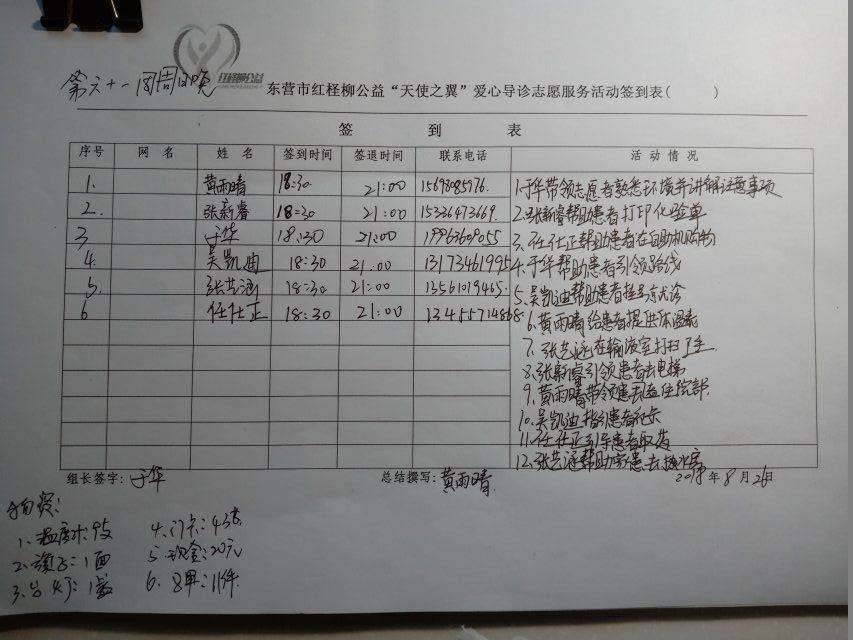 红柽柳公益
第六十一周周日晚
东营市红柽柳公益“天使之翼”爱心导诊志愿服务活动签到表( )
签 到 表
序号 网 名 姓 名 签到时间 签退时间 联系电话 活 动 情 况
1. 黄雨晴 18:30 21:00
2. 张新睿 18:30 21:00 15336473669
3 于华 18:30 21:00
4. 吴凯迪 18:30 21:00 13173461995
5. 张艺涵 18:30 21:00 13561019465
6 任仕正 18:30 21:00 13455714868
1.于华带领志愿者熟悉环境并讲解注意事项
2.张新睿帮助患者打印化验单
3.任仕正帮助患者在自助机购物
4.于华帮助患者引领路线
5.吴凯迪帮助患者挂号就诊
6.黄雨晴给患者提供体温表
7.张艺涵在输液室打扫卫生
8.张新睿引领患者去电梯
9.黄雨晴带领患者去住院部
10.吴凯迪指引患者办卡
11.任仕正引导患者取药
12.张艺涵帮助患者去
组长签字:于华 总结撰写:黄雨晴 2018年8月26日
物资:
1.温度计:9支 4.门卡:4张
2.旗子:1面 5.现金:20元
3.台灯:1盏 6.马甲:11件